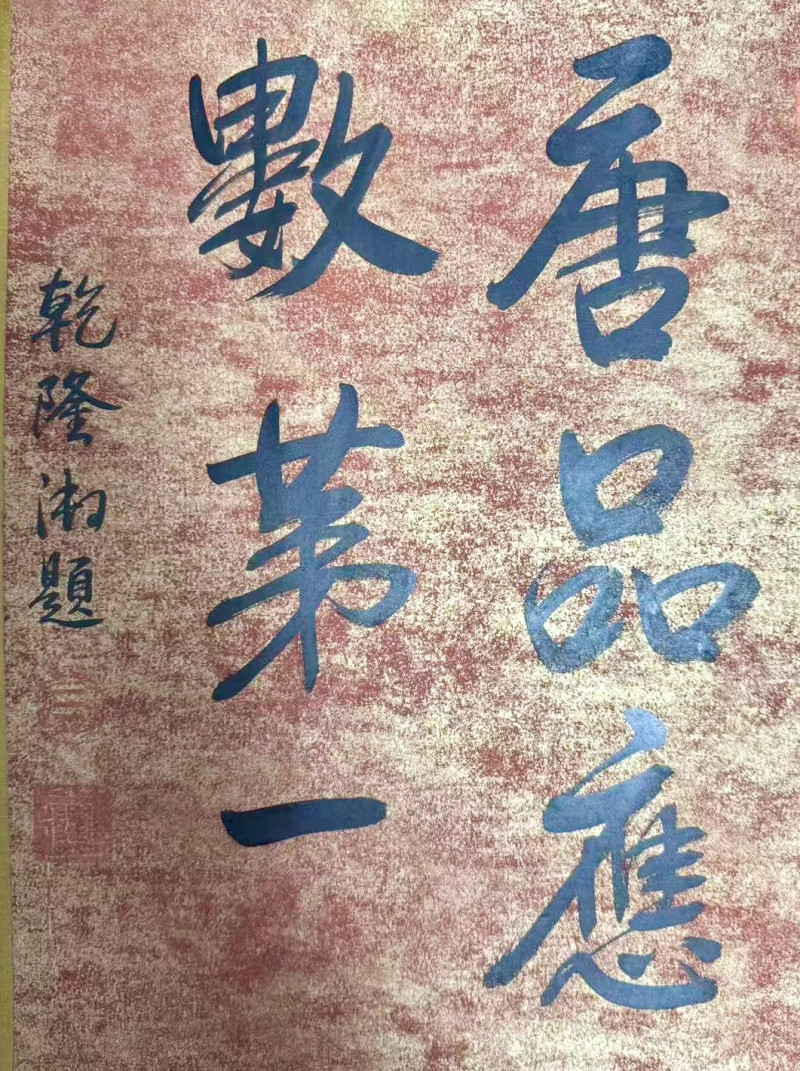 唐品應
數第一
乾隆御題